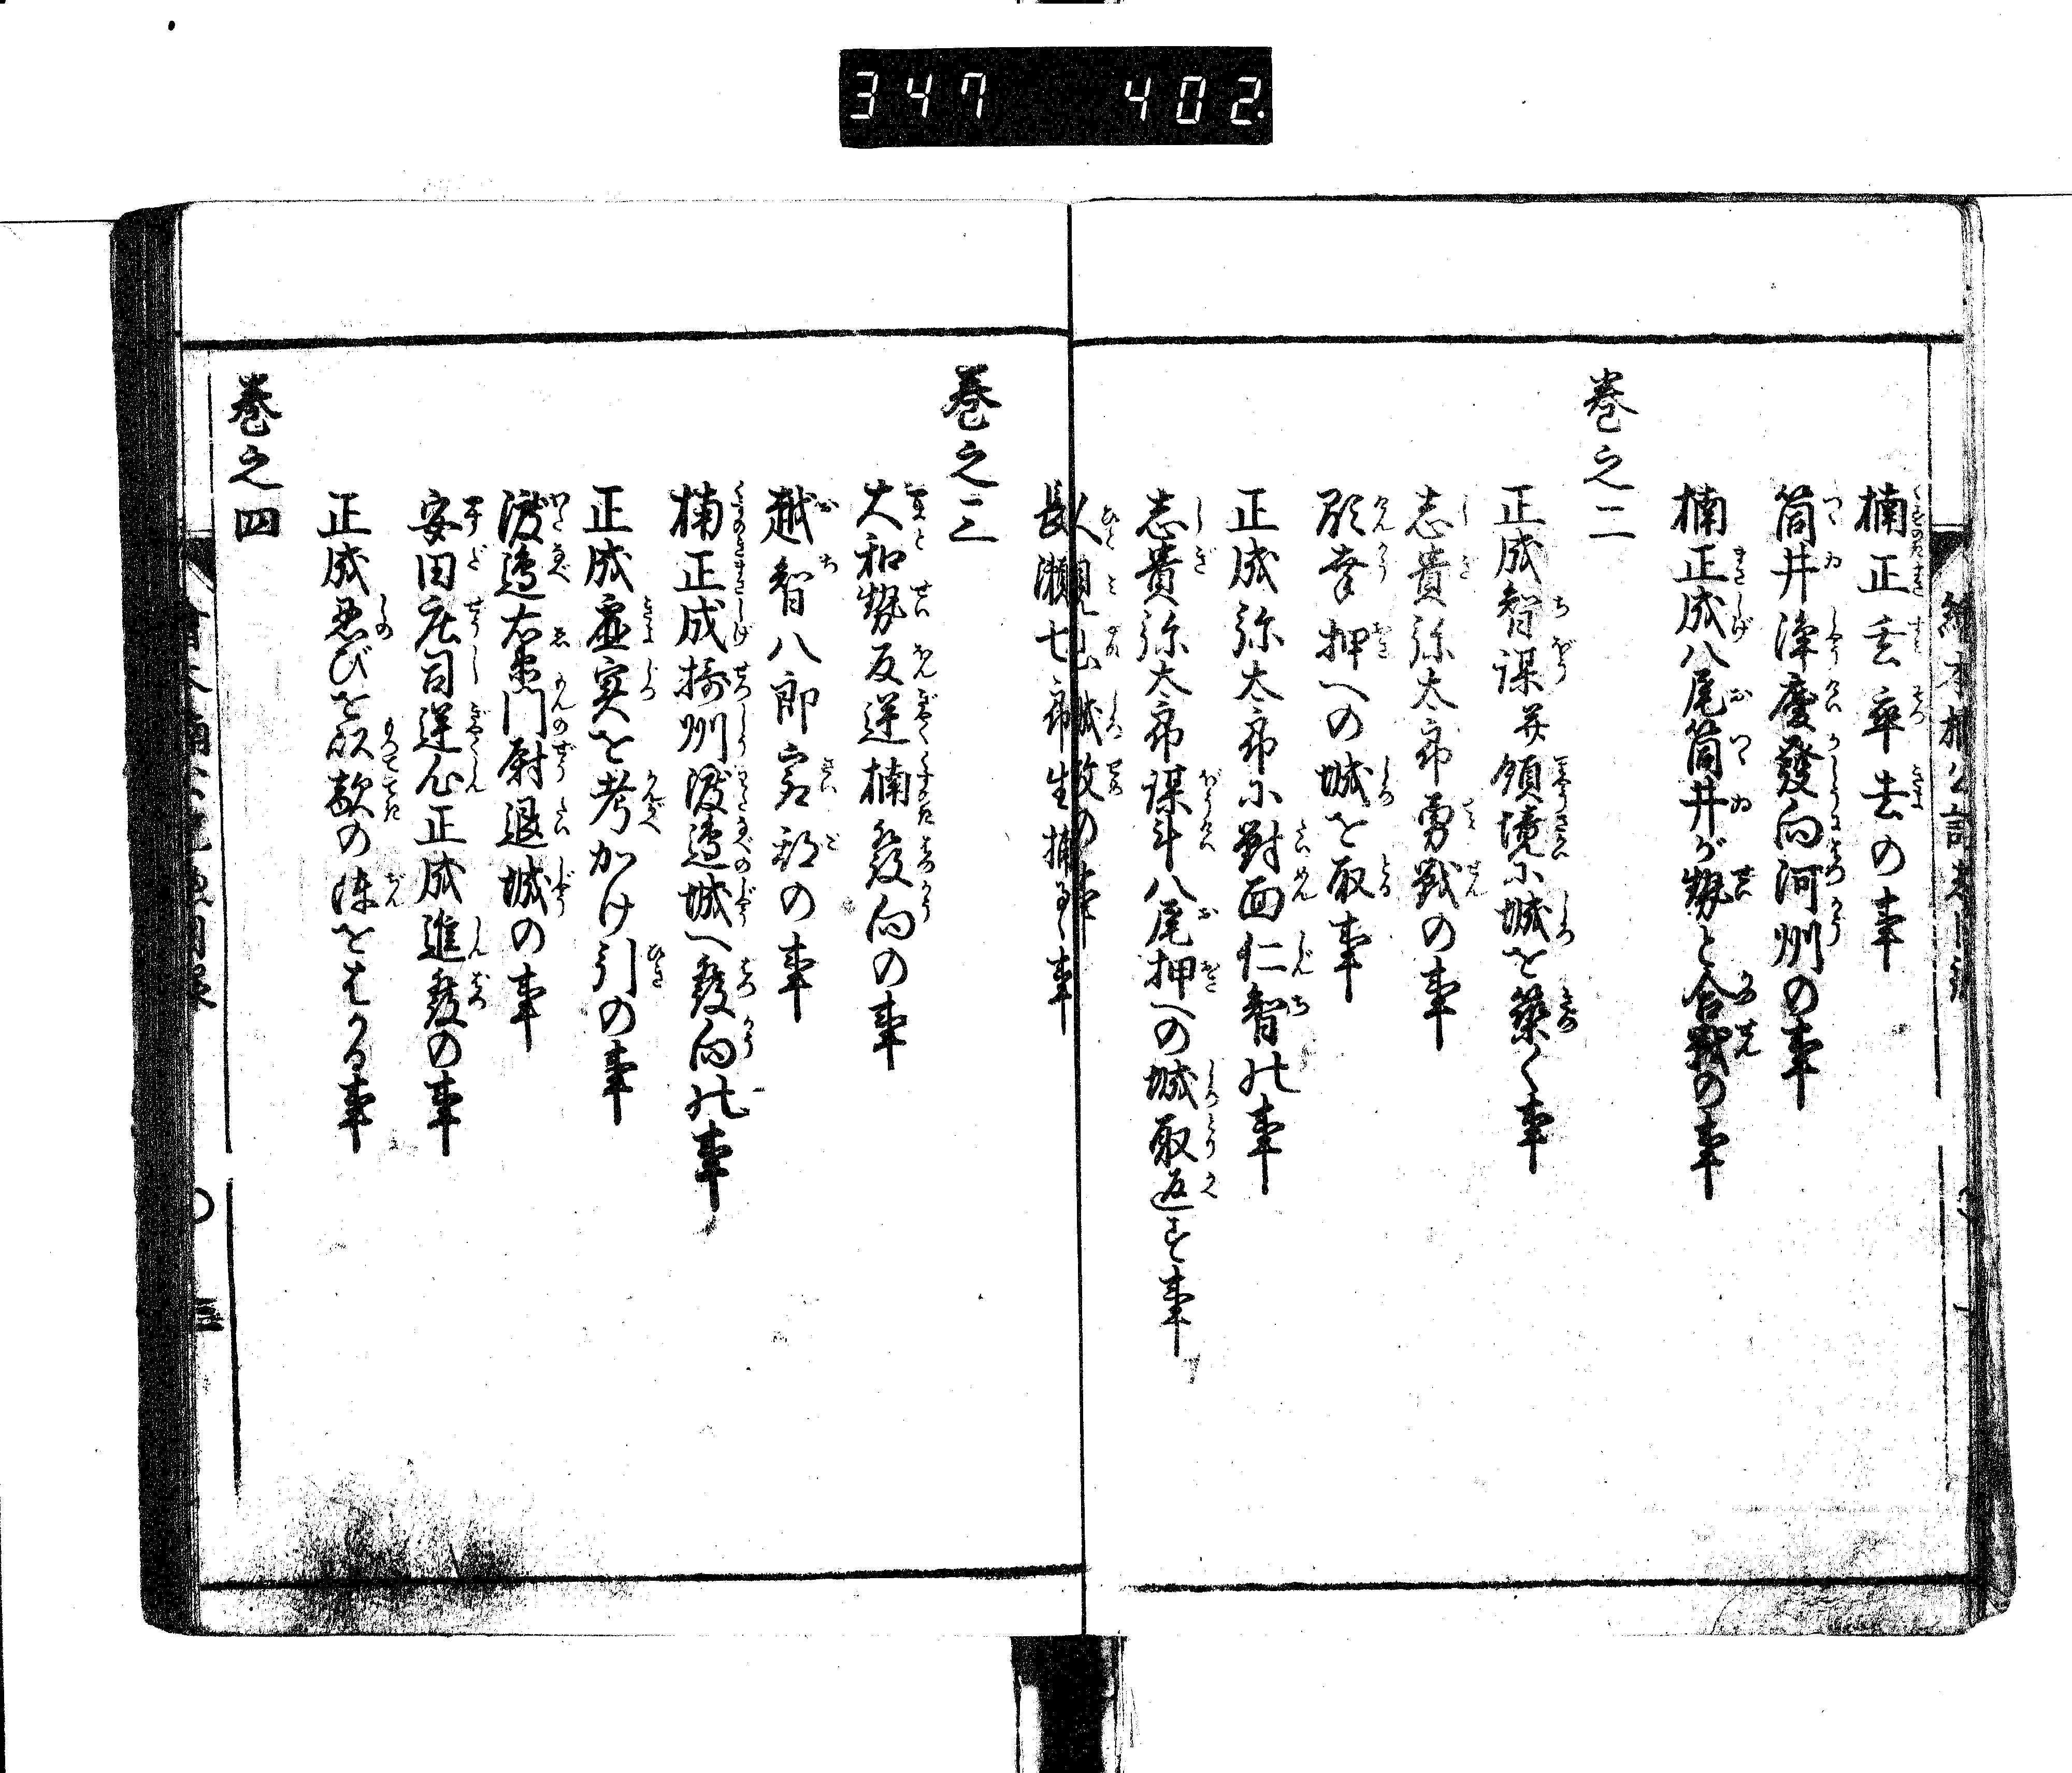 347 402.
楠正玄卒去の事
筒井浄慶發向河州の事
楠正成八尾筒井が勢と合戦の事
巻之二
正成智謀并領境に城を築く事
志貴弥太郎勇戦の事
顕幸押への城を取事
正成弥太郎に對面仁智の事
志貴弥太郎謀計八尾押への城取返す事
人見山城攻の事
長瀬七郎生捕るゝ事
巻之三
大和勢反逆楠發向の事
越智八郎宕都の事
楠正成摂州渡邊城へ發向の事
正成虚実を考かけ引の事
渡邊右衛門尉退城の事
安田庄司逆心正成進發の事
正成忍びを以敵の陣をはかる事
巻之四